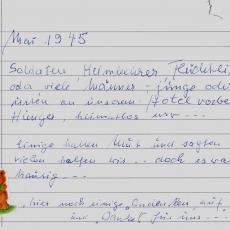 Mai 1945
Soldaten, Heimkehrer, Flüchtli
oda viele Männer - junge ode
irren an unserem Hotel vorbe
Hunger, heimatlos usw ...
Einige hatten Mut und sagten
vielen halfen wir .. doch es wa
traurig ...
hier noch einige auf
und "Danke" für uns ...